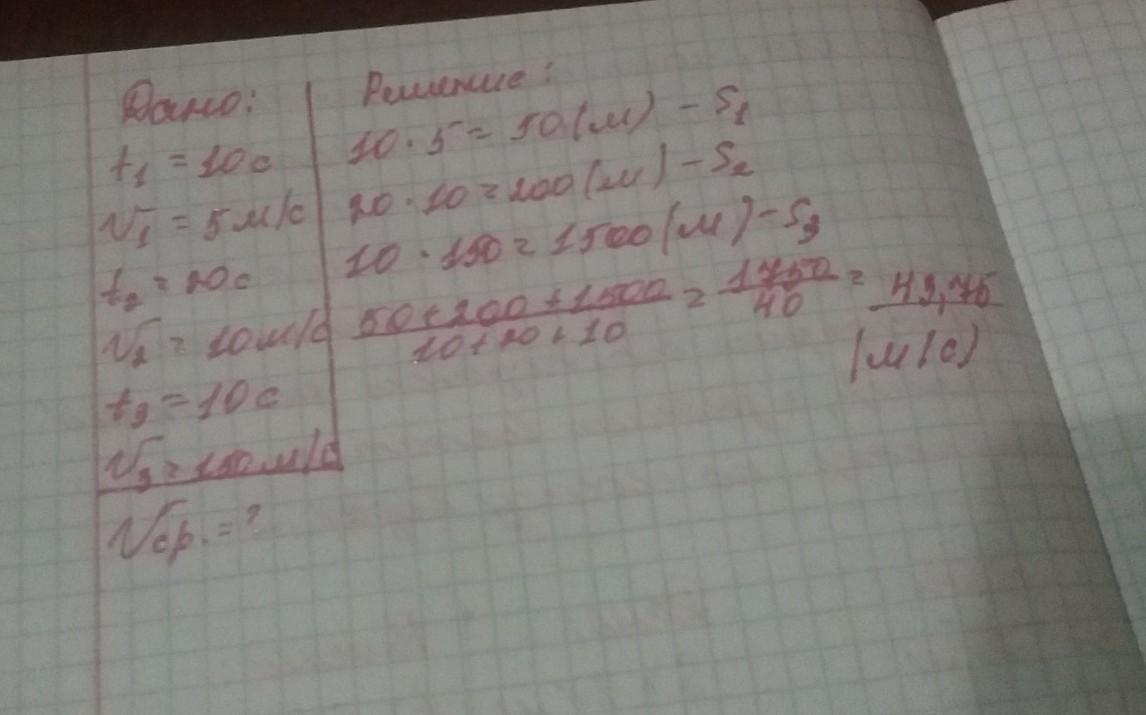 Дано:
t₁ = 10 с
v₁ = 5 м/с
t₂ = 20 с
v₂ = 10 м/с
t₃ = 10 с
v₃ = 150 м/с
vср. = ?
Решение:
10 · 5 = 50 (м) - S₁
20 · 10 = 200 (м) - S₂
10 · 150 = 1500 (м) - S₃
50 + 200 + 1500 / 10 + 20 + 10 = 1750 / 40 = 43,75
(м/с)